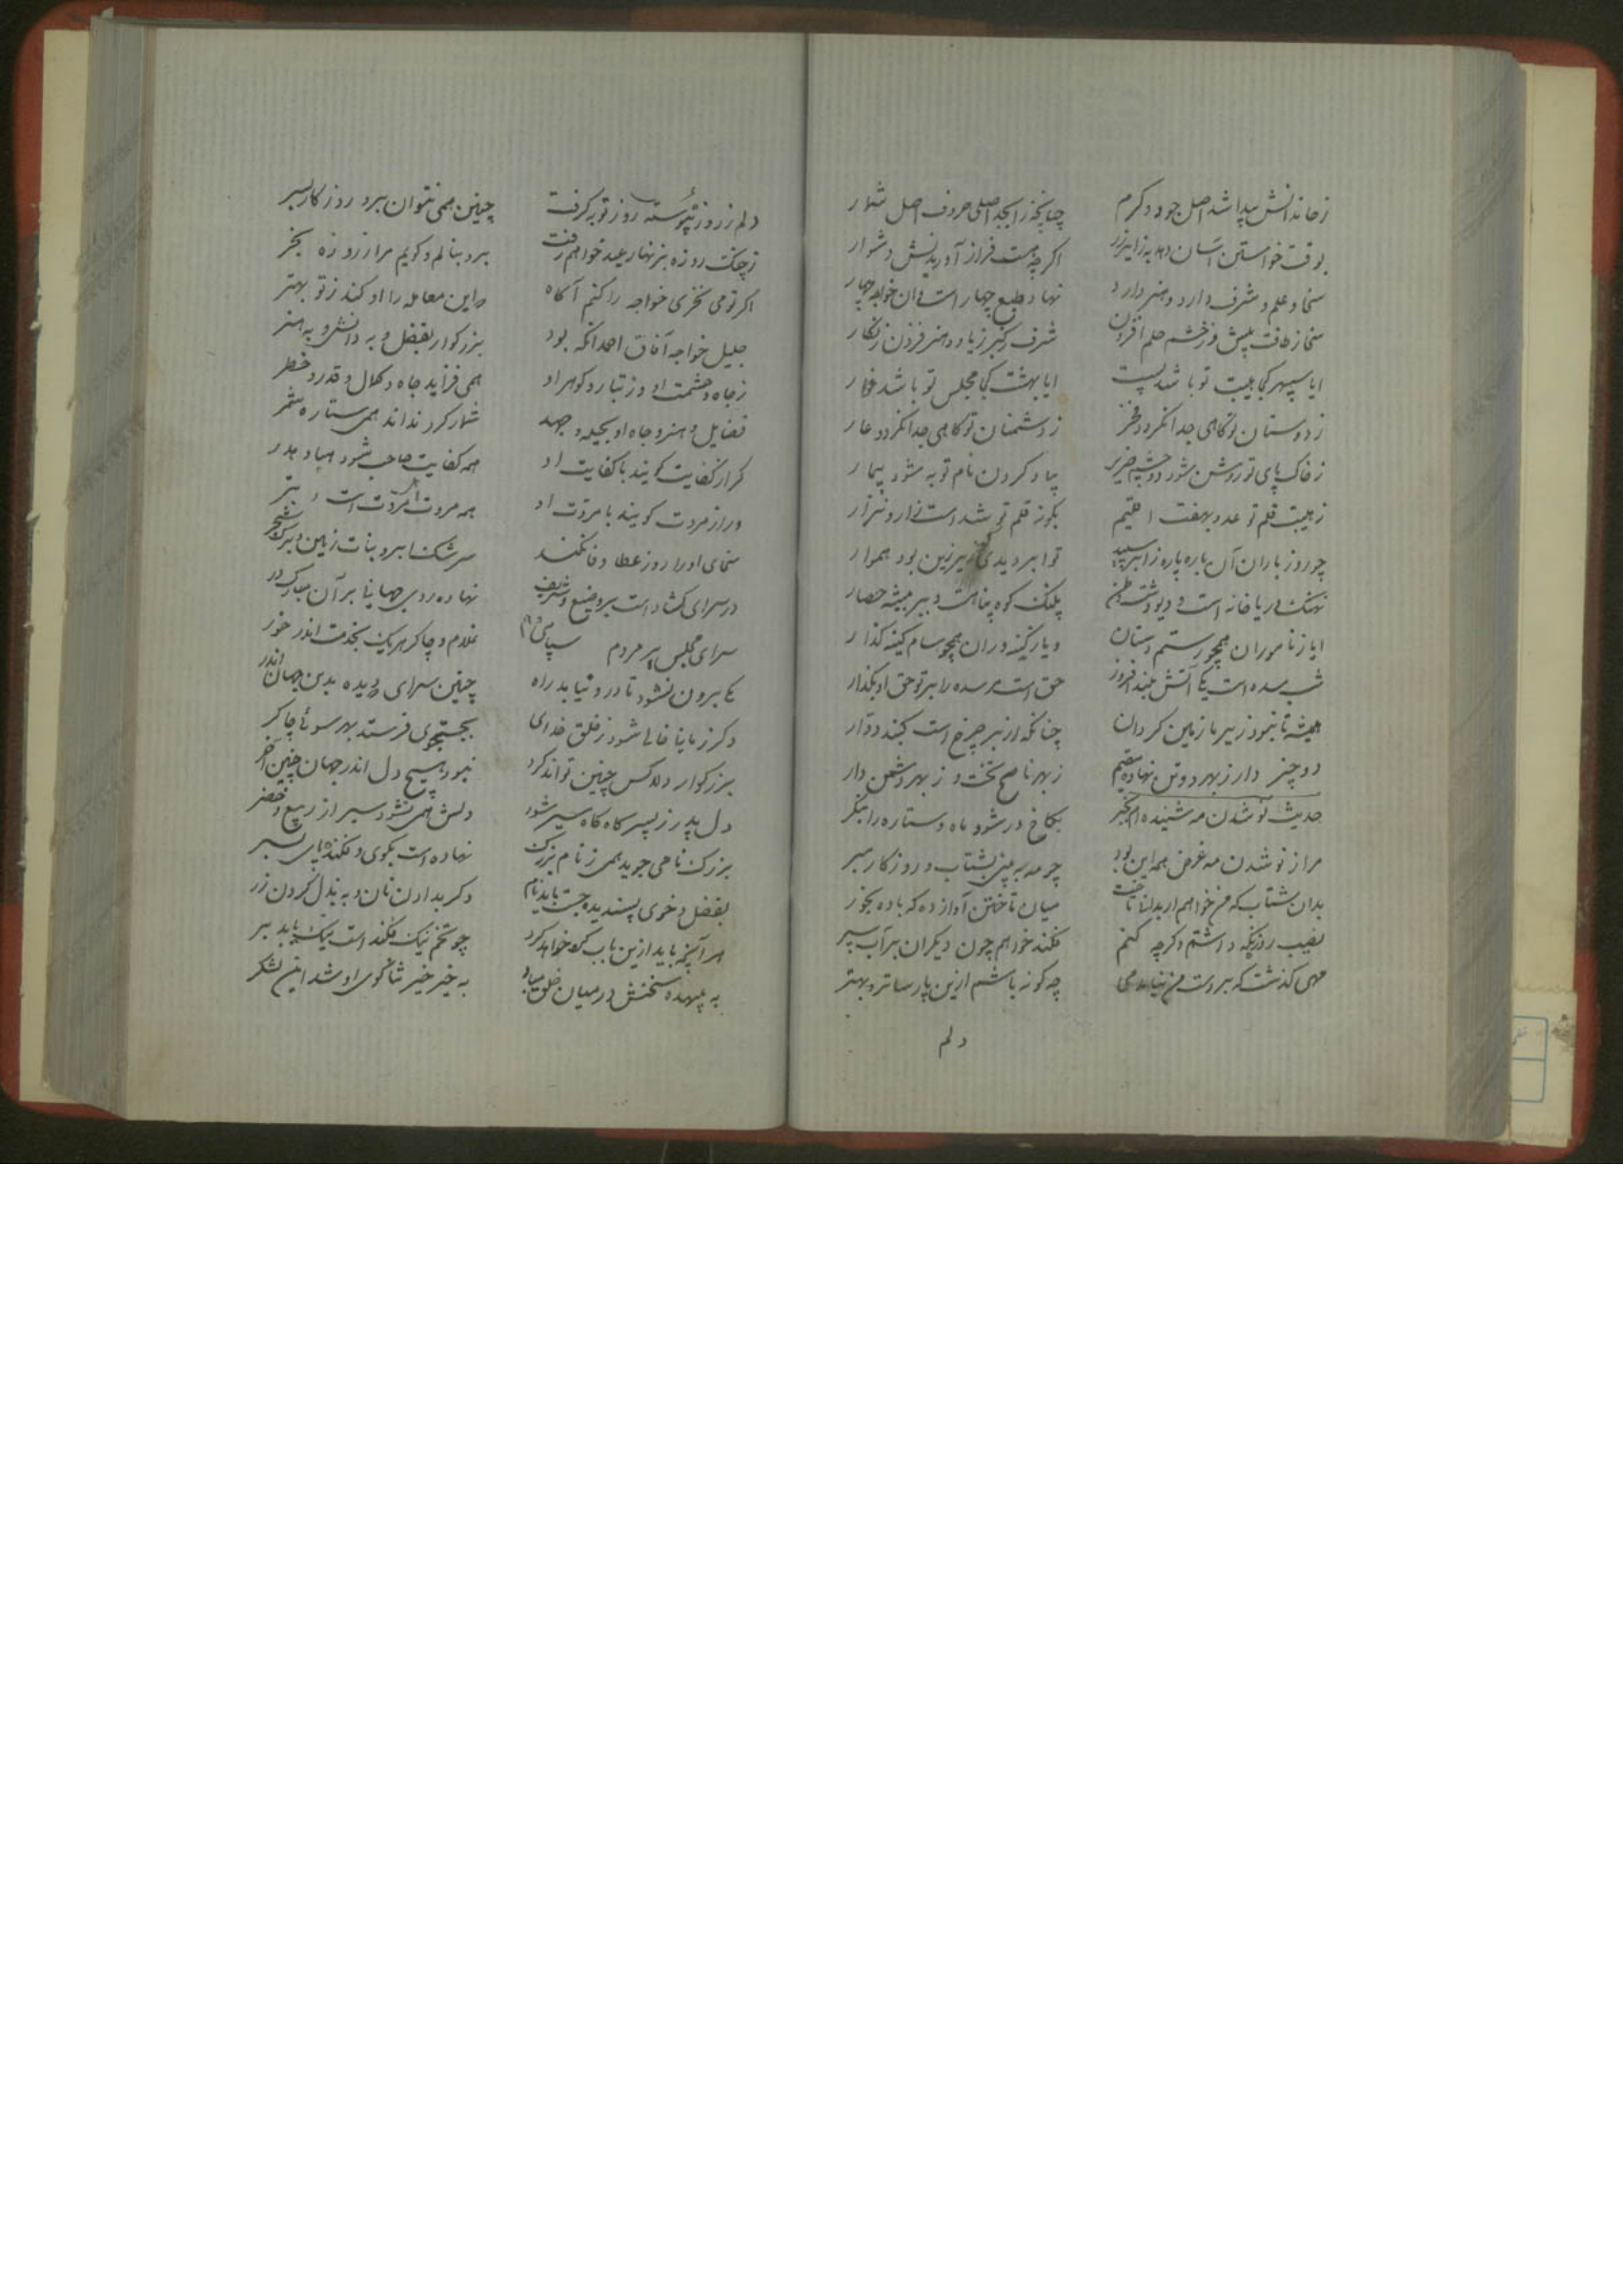 زخاندانش پیدا شد اصل جود و کرم چنانچه ز ابجد اصلی حروف اصل شمار
بوقت خواستن آسان دهد به زایر زر اگرچه هست فراز آوریدنش دشوار
سخا و علم و شرف دارد و هنر دارد نهاد و طبع چهار است و آن خواجه چهار
سخا ز طاقت بیش و ز خشم حلم افزون شرف ز کبر زیاد و هنر فزون ز نگار
ایا سپهر کجا همت تو باشد پست ایا بهشت کجا مجلس تو باشد خوار
ز دوستان تو گاهی جدا نگردد فخر ز دشمنان تو گاهی جدا نگردد عار
ز خاک پای تو روشن شود دو چشم ضریر بیاد کردن نام تو به شود بیمار
ز هیبت قلم تو عدو بهفت اقلیم بگونه قلم تو شد است زار و نزار
چو روز باران آن پاره پاره ز ابر سپید تو ابر دیدی زیرین بود هموار
نهنگ دریا خانه است و دیو دشت وطن پلنگ کوه پناهست و ببر بیشه حصار
ایا ز ناموران همچو رستم دستان و یا ز کینه وران همچو سام کینه گذار
شب سده است یکی آتش بلند افروز حق است مر سده را بر تو حق او بگذار
همیشه تا نبود زیر ما زمین گردان چنانکه از بر چرخ است گنبد دوار
دو چیز دار ز بهر دو تن نهاده مقیم ز بهر ناصح تخت و ز بهر دشمن دار
حدیث نو شدن مه شنیده‌ای بخبر بکاخ در شو و ماه و ستاره را بنگر
مرا ز نو شدن مه غرض همه این بود چو مه به بینی بشتاب و روزگار مبر
بدان شتاب که من خواهم ار بدانی تاخت میان تاختن آواز ده که باده بخور
نصیب روز نگه داشتم وگرچه کنم فکند خواهم چون دیگران بر آب سپر
مهی گذشت که بر دست من نیامد می چه گونه باشم ازین پارساتر و بهتر
دلم
دلم ز روزه بپوست و ز توبه گرفت چنین همی نتوان برد روزگار بسر
ز چنگ روزه بزنهار عید خواهم رفت برو بنالم و گویم مرا ز روزه بخر
اگر تو می نخری خواجه را کنم آگاه که این معامله را او کند ز تو بهتر
جلیل خواجه آفاق احمد آنکه بود بزرگوار بفضل و به دانش و به هنر
ز جاه و حشمت او وز تبار و گوهر او همی فزاید جاه و جلال و قدر و خطر
فضایل و هنر و جاه او بحیله و جهد شمار کرد نداند همی ستاره شمر
گر از کفایت گویند با کفایت او همه کفایت صاحب شود هبا و هدر
ور از مروت گویند با مروت او همه مروت است و بتر
سخای او را روز عطا وفا نکند سرشک ابر و نبات زمین و برگ شجر
در سرای گشاد است بر وضیع و شریف نهاده روی جهانیا بر آن مبارک در
سرای مجلس پر مردم غلام و چاکر هر یک بخدمت اندر خور
یکی برون نشود تا دروند نیابد راه چنین سرای که دیده بدین جهان اندر
وگر زمانی خالی شود ز خلق خدای بجستجوی فرستد بهر سوئی چاکر
بزرگوار دلا کس چنین تواند کرد نبود هیچ دل اندر جهان چنین
دل پدر ز پسر گاه گاه سیر شود دلش همی نشود سیر از ربیع و مضر
بزرگ نامی جوید همی ز نام بزرگ نهاده است بکوی و فکنده پای بسر
بفضل و خوی پسندیده جست باید نام دگر بدادن نان و به بذل کردن زر
هر آنچه باید ازین باب کرد خواهد کرد چو تخم نیک فکند است نیک یابد بر
به بیهده سخنش در میان خلق مباد به خیر خیر ثناگوی او شد این لشکر